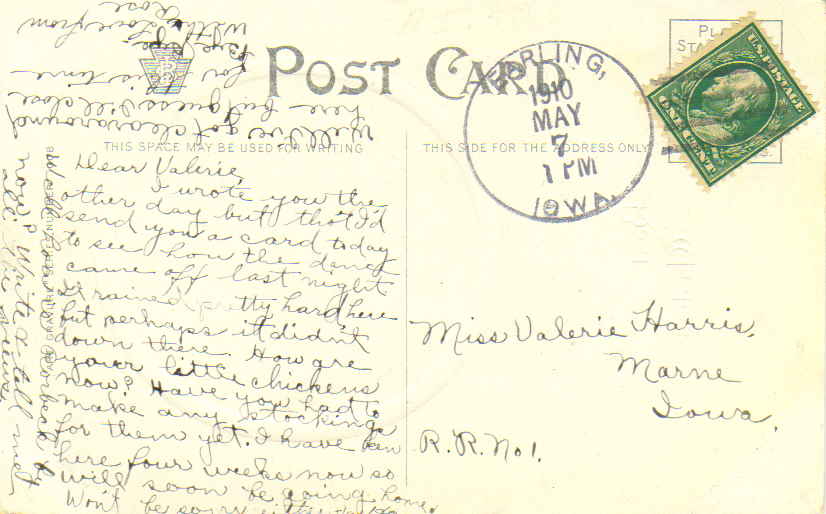 POST CARD
THIS SPACE MAY BE USED FOR WRITING
THIS SIDE FOR THE ADDRESS ONLY
EARLING,
1910
MAY
7
1 PM
IOWA.
U.S. POSTAGE
ONE CENT
Dear Valerie,
I wrote you the
other day but tho't I'd
send you a card today
to see how the dance
came off last night
It rained pretty hard here
but perhaps it didn't
down there. How are
your little chickens
now? Have you had to
make any stockings
for them yet. I have been
here four weeks now so
will soon be going home.
Won't be sorry either
now? Write & tell me
all the news.
Well I've got clear around
here but guess I'll close
for this time
Bye bye
With love from
Rose
Miss Valerie Harris,
Marne
Iowa.
R.R. No 1.